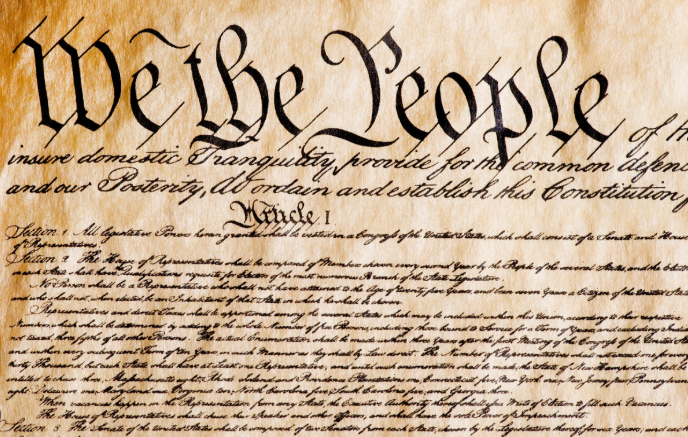 We the People of th
insure domestic Tranquility, provide for the common defenc
and our Posterity, do ordain and establish this Constitution f
Article I
Section 1 All legislative Powers herein granted shall be vested in a Congress of the United States, which shall consist of a Senate and House
of Representatives.
Section 2 The House of Representatives shall be composed of Members chosen every second Year by the People of the several States, and the Electors
in each State shall have the Qualifications requisite for Electors of the most numerous Branch of the State Legislature.
No Person shall be a Representative who shall not have attained to the Age of twenty five Years, and been seven Years a Citizen of the United States
and who shall not, when elected, be an Inhabitant of that State in which he shall be chosen.
Representatives and direct Taxes shall be apportioned among the several States which may be included within this Union, according to their respective
Numbers, which shall be determined by adding to the whole Number of free Persons, including those bound to Service for a Term of Years, and excluding Indians
not taxed, three fifths of all other Persons. The actual Enumeration shall be made within three Years after the first Meeting of the Congress of the United States
and within every subsequent Term of ten Years, in such Manner as they shall by Law direct. The Number of Representatives shall not exceed one for every
thirty Thousand, but each State shall have at Least one Representative; and until such enumeration shall be made, the State of New Hampshire shall be
entitled to chuse three, Massachusetts eight, Rhode Island and Providence Plantations one, Connecticut five, New York six, New Jersey four, Pennsylvania
eight, Delaware one, Maryland six, Virginia ten, North Carolina five, South Carolina five, and Georgia three.
When vacancies happen in the Representation from any State, the Executive Authority thereof shall issue Writs of Election to fill such Vacancies.
The House of Representatives shall chuse their Speaker and other Officers; and shall have the sole Power of Impeachment.
Section 3 The Senate of the United States shall be composed of two Senators from each State, chosen by the Legislature thereof, for six Years; and each